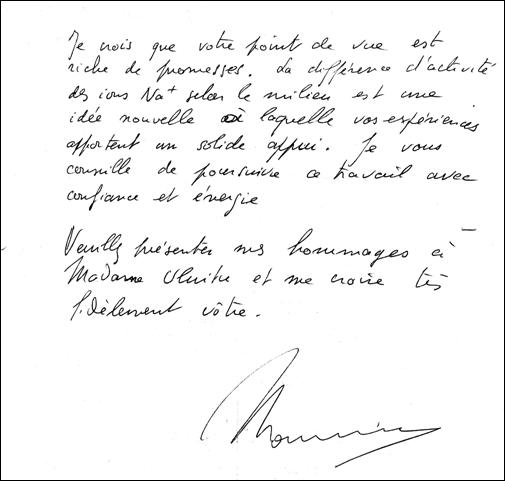 Je crois que votre point de vue est
riche de promesses. La différence d'activité
des ions Na+ selon le milieu est une
idée nouvelle à laquelle vos expériences
apportent un solide appui. Je vous
conseille de poursuivre ce travail avec
confiance et énergie
Veuillez présenter mes hommages à
Madame et me croire très
fidèlement vôtre.